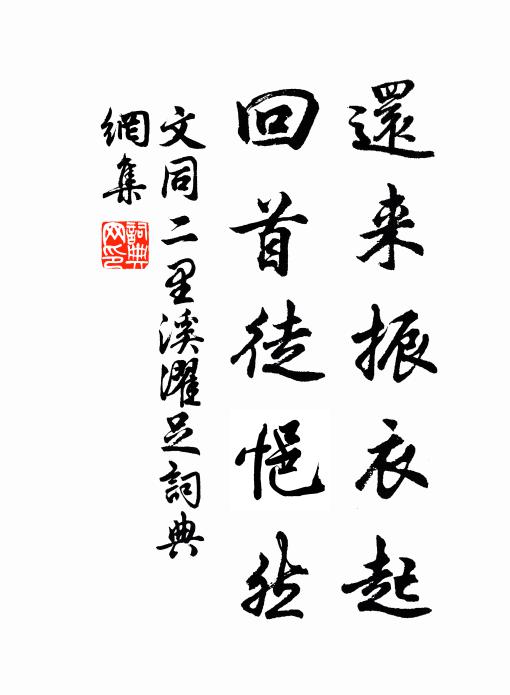 還来振衣起
回首徒悒然
文同二里溪濯足詞典
網集
詞典
网印